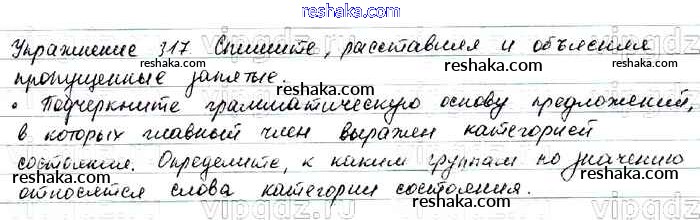 reshaka.com
Упражнение 317 Спишите, расставляя и объясняя
пропущенные запятые.
• Подчеркните грамматическую основу предложений,
в которых главный член выражен категорией
состояния. Определите, к каким группам по значению
относятся слова категории состояния.
reshaka.com
reshaka.com
reshaka.com
reshaka.com
reshaka.com
reshaka.com
reshaka.com
vipgdz.ru